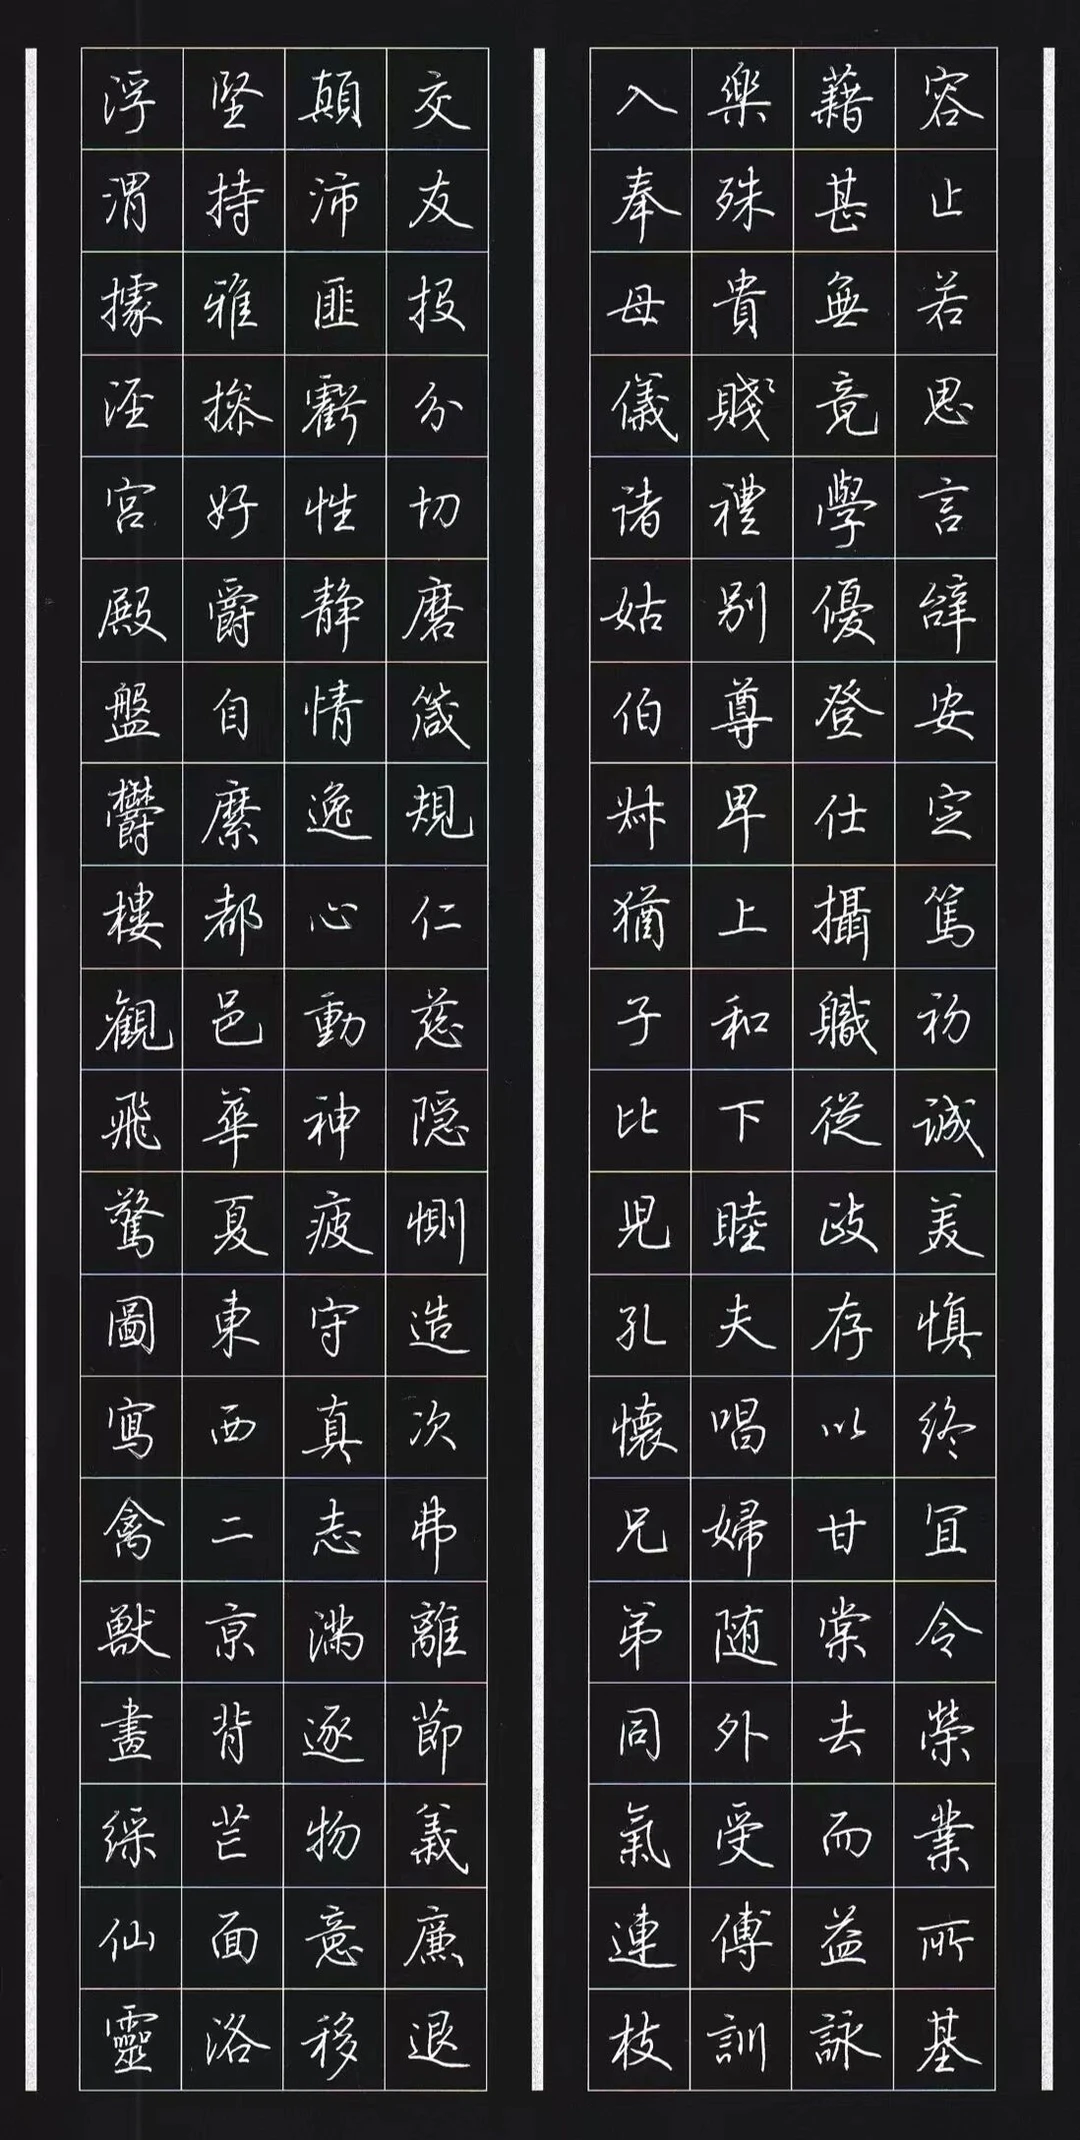 容止若思言辞安定篤初誠美慎終宜令榮業所基
藉甚無竟學優登仕攝職從政存以甘棠去而益詠
樂殊貴賤禮別尊卑上和下睦夫唱婦随外受傅訓
入奉母儀诸姑伯叔猶子比兒孔懷兄弟同氣連枝
交友投分切磨箴規仁慈隱惻造次弗離節義廉退
顛沛匪虧性静情逸心動神疲守真志滿逐物意移
堅持雅操好爵自縻都邑華夏東西二京背芒面洛
浮渭據涇宮殿盤鬱樓觀飛驚圖寫禽獸畫綵仙靈